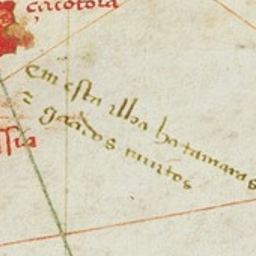 çacotora
em esta ilha ha tamaras
e gaados muitos
ssia